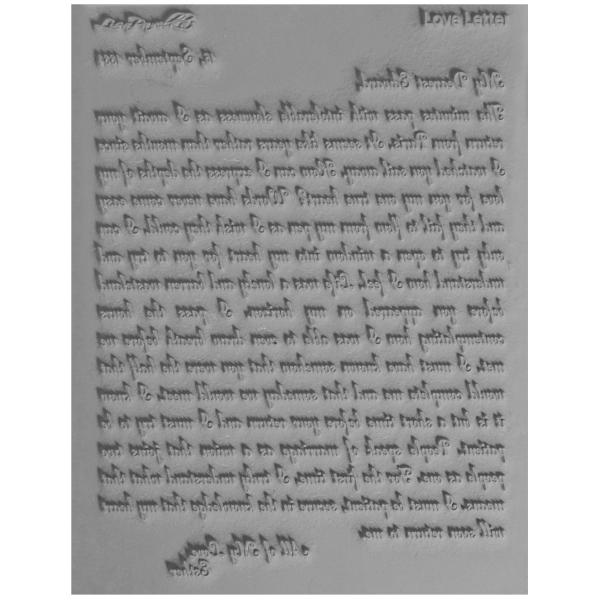 Love Letter
15, September 1881
My Dearest Edward,
The minutes pass with intolerable slowness as I await your
return from Paris. It seems like years rather than months since
I watched you sail away. How can I express the depths of my
love for you my one true heart? Words have never come easy
and they fail to flow from my pen as I wish they could. I can
only try to open a window into my heart for you to try and
understand how I feel. Life was a lonely and barren wasteland
before you appeared on my horizon. I pass the hours
contemplating how I was able to even draw breath before we
met. I must have known somehow that you were the half that
would complete me and that someday we would meet. I know
it is but a short time before your return and I must try to be
patient. People speak of marriage as a union that joins two
people as one. For the first time, I truly understand what that
means. I must be patient, secure in the knowledge that my heart
will soon return to me.
All of My Love,
Esther